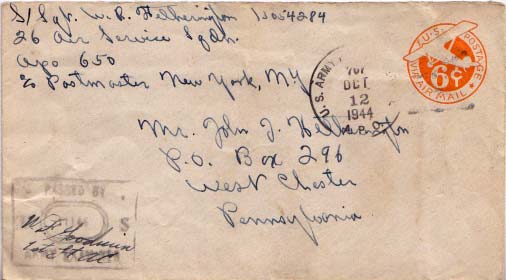 S/Sgt. W. R. Hetherington 13054284
26 Air Service Sqdn.
Apo 650
c/o Postmaster New York, N.Y.
U.S. POSTAGE
6¢
VIA AIR MAIL
U.S. ARMY
OCT
12
1944
A.P.O.
Mr. John J. Hetherington
P.O. Box 296
West Chester
Pennsylvania
PASSED BY
S
W. F. Goodwin
1st Lt AC